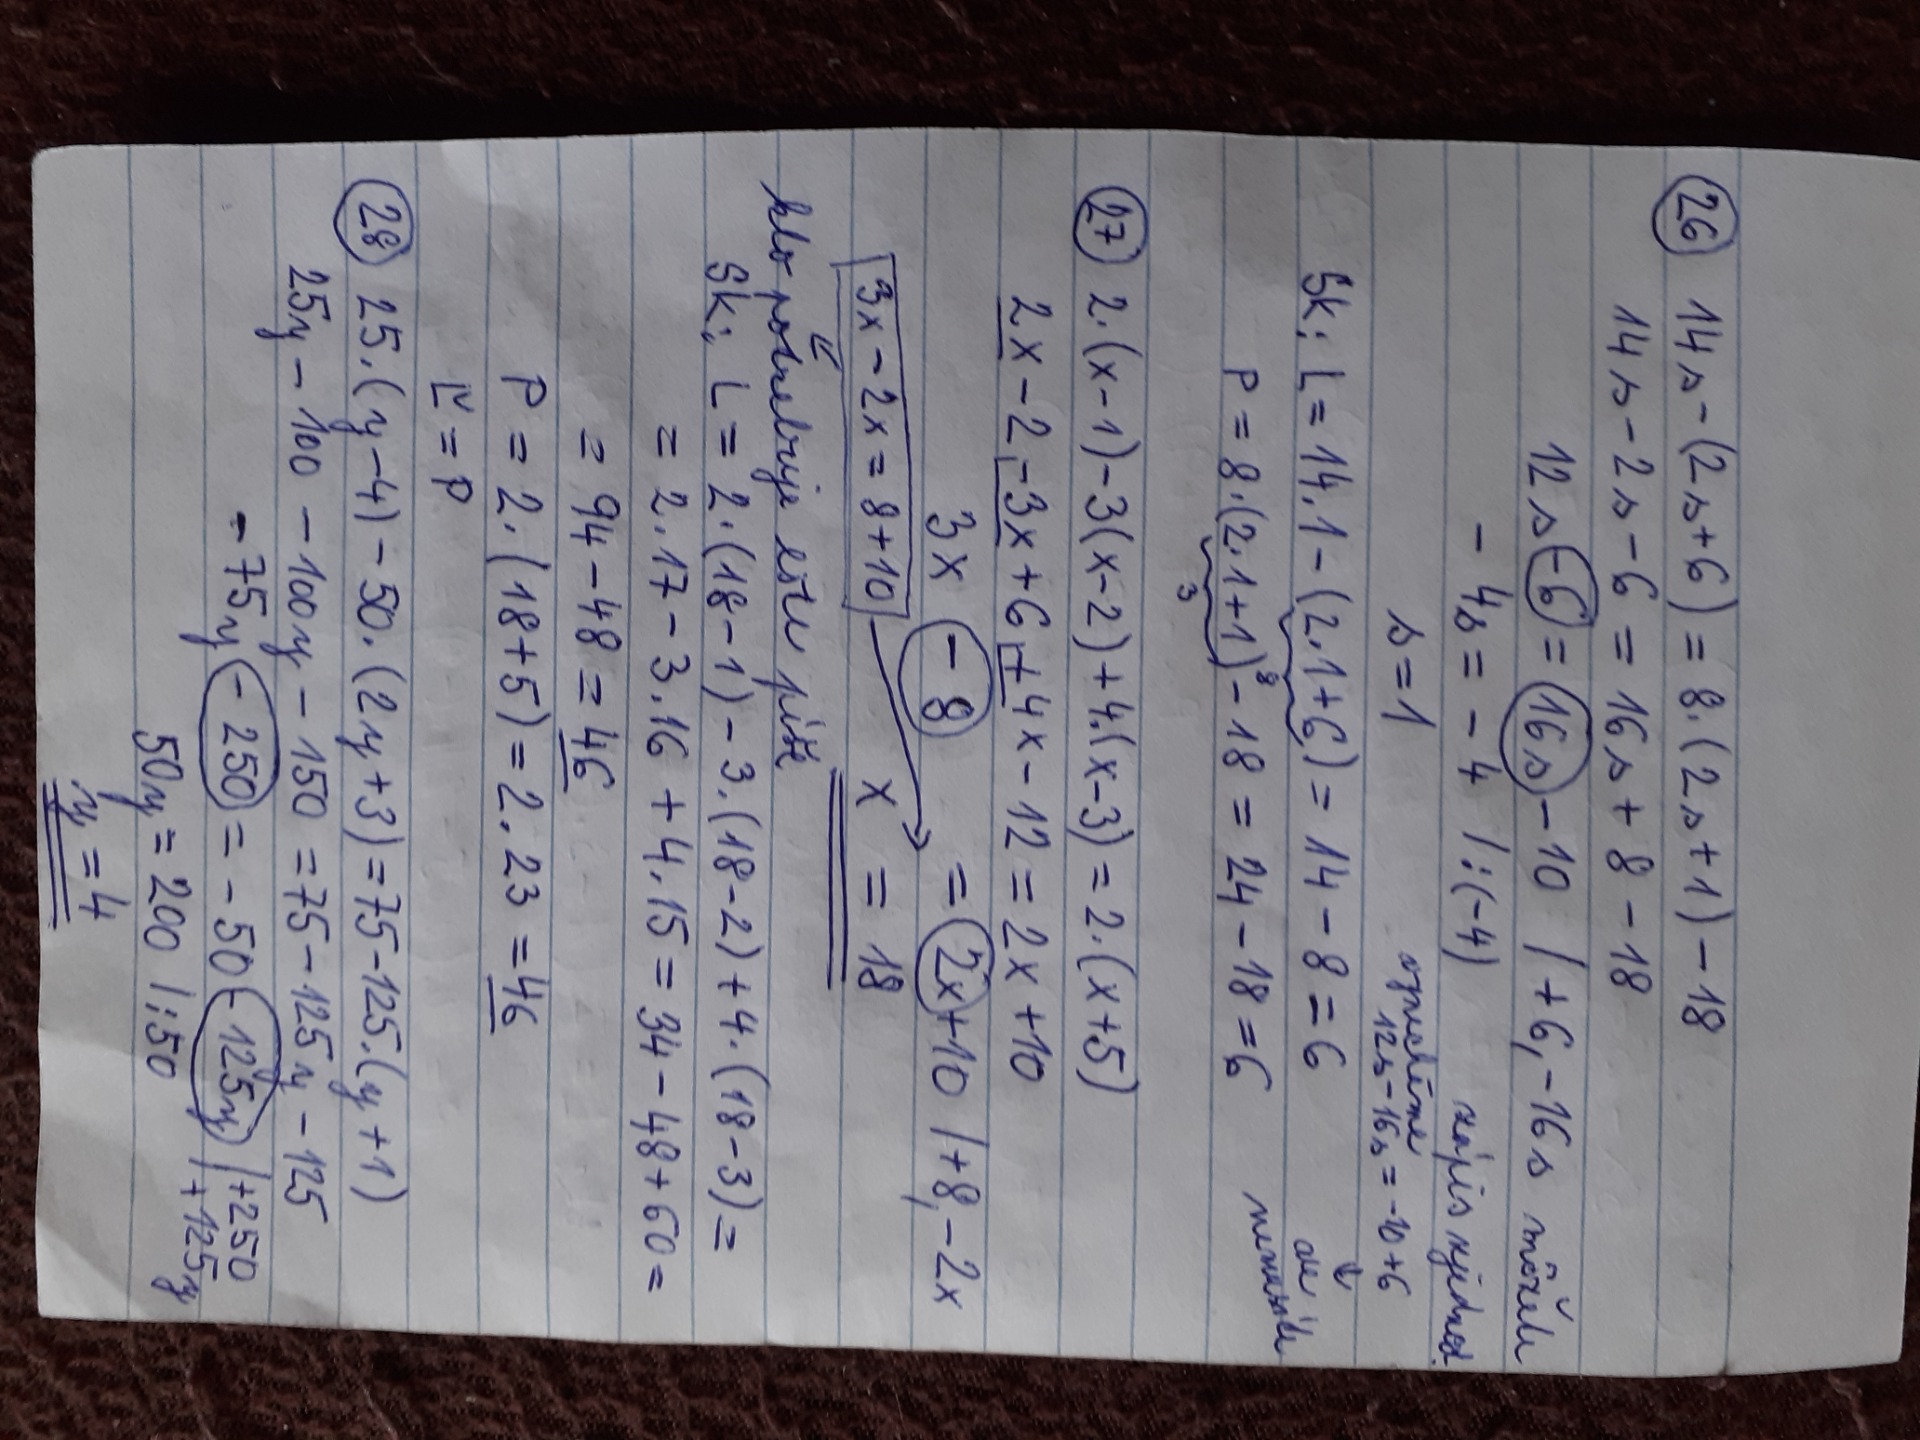 26 14s-(2s+6) = 8.(2s+1)-18
14s-2s-6 = 16s+8-18
12s-6 = 16s-10 /+6,-16s môžeš
-4s = -4 /:(-4) zápis vyjednod.
s=1 vynecháme 12s-16s=-10+6
Sk: L = 14.1-(2.1+6) = 14-8=6 ale
P = 8.(2.1+1)-18 = 24-18=6 nemusíš
3
8
27 2.(x-1)-3(x-2)+4.(x-3) = 2.(x+5)
2x-2-3x+6+4x-12 = 2x+10
3x-8 = 2x+10 /+8,-2x
3x-2x=8+10 x = 18
kto potrebuje ešte píše
Sk: L = 2.(18-1)-3.(18-2)+4.(18-3) =
= 2.17-3.16+4.15 = 34-48+60 =
= 94-48 = 46
P = 2.(18+5) = 2.23 = 46
Ľ = P
28 25.(y-4)-50.(2y+3) = 75-125.(y+1)
25y-100-100y-150 = 75-125y-125
-75y-250 = -50-125y /+250
+125y
50y = 200 /:50
y = 4